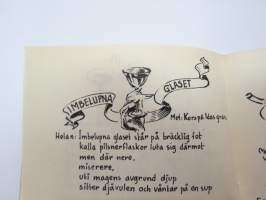 IMBELUPNA GLASET
Mel: Kors på Idas grav.
Helan: Imbelupna glaset står på bräcklig fot
kalla pilsnerflaskor luta sig därmot
men där nere,
miserere,
uti magens avgrund djup
sitter djävulen och väntar på en sup